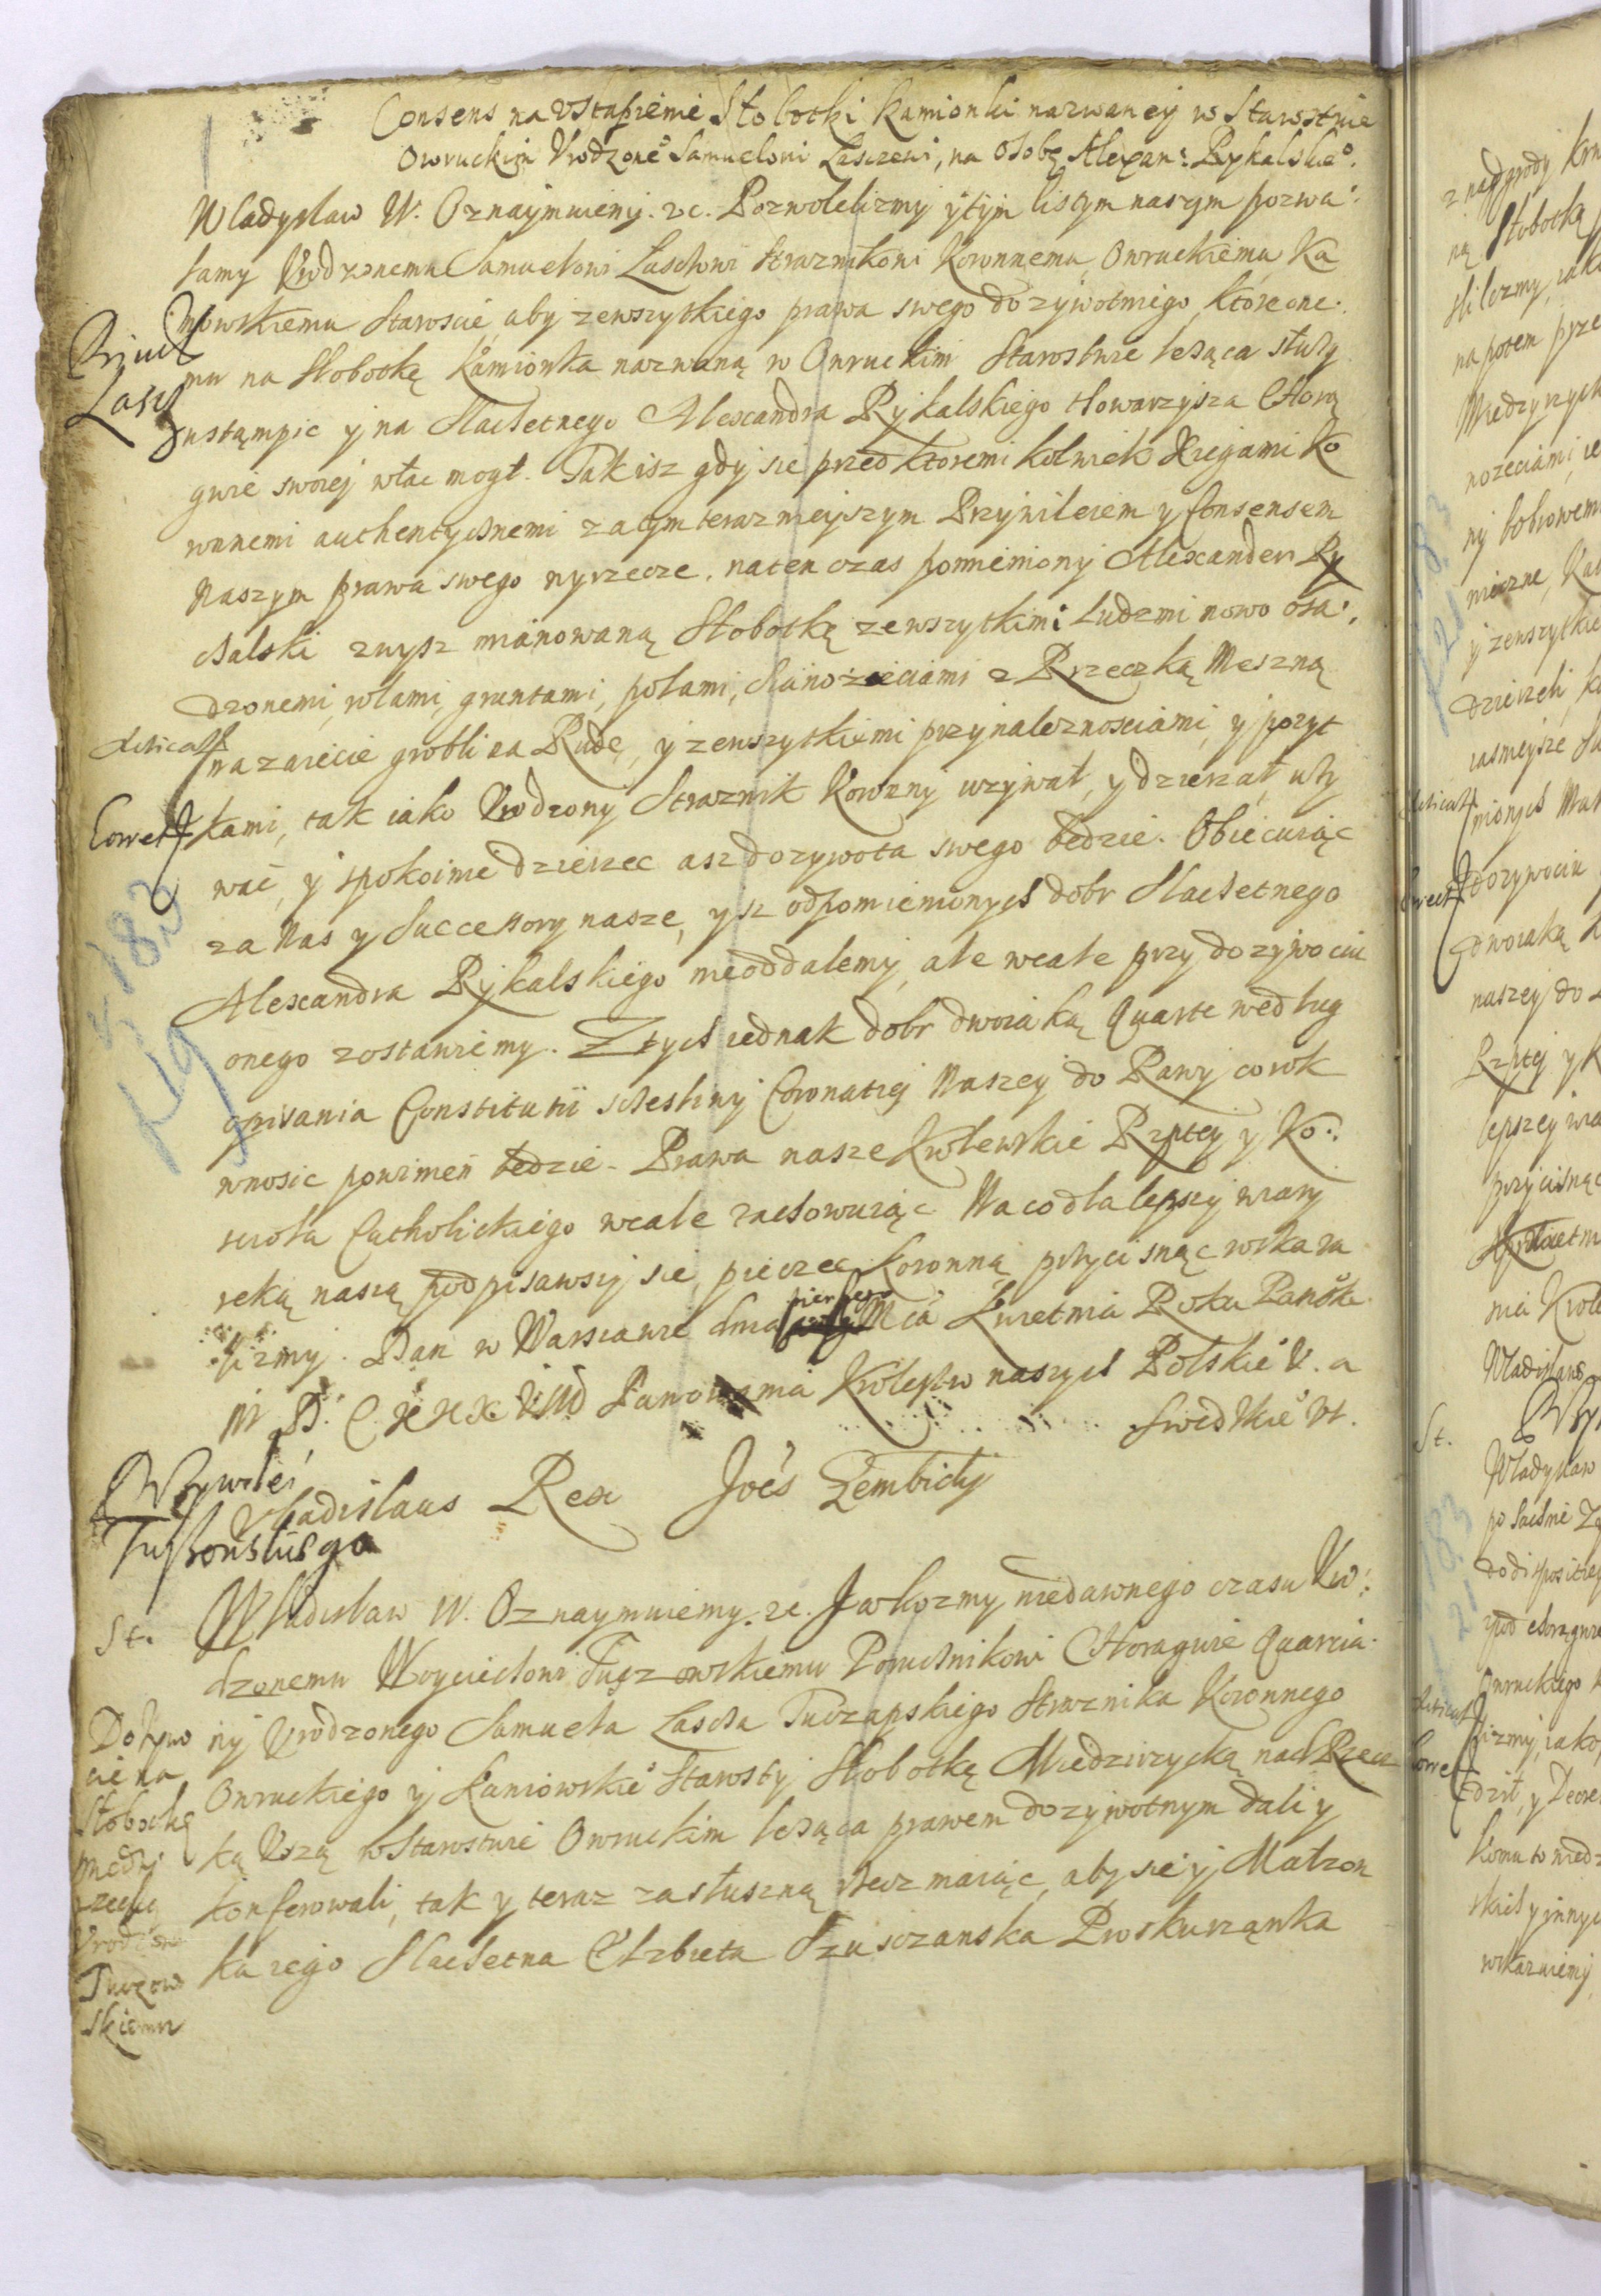 Consens na Vstąpienie Słobotki Kamionki nazwaney w Starostwie
Owruckim Vrodzone° Samuelowi Łasczewi, na osobę Alexan: Rykalskie°.
Wladysław IV. Oznaymuiemy. &c. Pozwolelismy y tym listem naszym pozwa:
lamy Vrodzonemu Samuelowi Laschowi Straznikowi Koronnemu, Owruckiemu, Ka
niowskiemu Staroscie, aby zewszytkiego prawa swego dozywotniego, ktore one:
mu na Słobotkę Kamionka nazwaną w Owruckim Starostwie leżąca służy
ustąmpic y na Slachetnego Alexandra Rykalskiego Towarzysza Chorą
gwie swoiej wlac mogł. Tak isz gdy sie przed ktoremi kolwiek Xięgami Ko
wnnemi authentycznemi za tym teraznieyszym Przywileiem y Consensem
Naszym prawa swego wyrzecze, na ten czas pomieniony Alexander Ry
chalski zwysz mianowaną Słobotkę zewszytkimi ludzmi nowo osa:
dzonemi, rolami, gruntami, polami, sianożęciami z Rzeczką Meszną
na zaięcie grobli na Rudę, y zewszytkiemi przynaleznosciami, y pozyt
kami, tak iako Vrodzony Straznik Koronny uzywał, y dzierzał, uzy
wać, y spokoinie dzierzec asz dozywota swego będzie. Obiecuiąc
za Nas y Successory nasze, ysz odpomienionych dobr Slachetnego
Alexandra Rykalskiego nieoddalemy, ale wcale przy dozywociu
onego zostawiemy. Z tych iednak dobr dwoiaką Quarte według
opisania Constitutii scłęsliwy Coronatiej Naszey do Rawy co rok
wnosic powinien będzie. Prawa nasze Krolewskie Rzptey y Ko:
sciola Catholickiego wcale zachowuiąc. Na co dla lepszey wiary
ręką naszą podpisawszy się, pieczęc Koronną przycisnąc rozkaza
lismy. Dan w Warszawie dnia pierwszego Mca Kwietnia Roku Pańśk
M D: C XXXVIII Panowania Krolestw naszych Polskie° V. a
Swedzkie° VI.
Vladislaus Rex Joës Zembicky
Przywilei
Tuszowskiego
St.
Władisław IV. Oznaymuiemy. &c. Jakozmy niedawnego czasu Vro:
dzonemu Woyciechowi Tuszowskiemu Porucznikowi Choragwie Quarcia:
ny Vrodzonego Samuela Lascha Tuczapskiego Straznika Koronnego
Owruckiego y Kaniowskie° Starosty Słobotkę Miedzirzycką nad Rzecz
ką Vszą w Starostwie Owruckim leżąca prawem dozywotnym dali y
konferowali, tak y teraz za słuszną rzecz maiąc, aby sie y Małzon
ka iego Slachetna Elzbieta Szusczanska Proskurzanka
Przywil
Lascz
Leticzow
Correct
f. 19
183
Dożywo
cie na
Słobotkę
miedzi
rzecką
Vrodzone
Tuszow
skiemu
z nagrody
ną Słobotką
na potem prze
ny bobrowemi
y zewszytkie
dzierżeli
dozywociu
dwoiaką
naszey do
Rzptej y
lepszey wia
przycisnąc
nia Krole
Wladislaus
St.
Władysław
Owruckiego
Correct